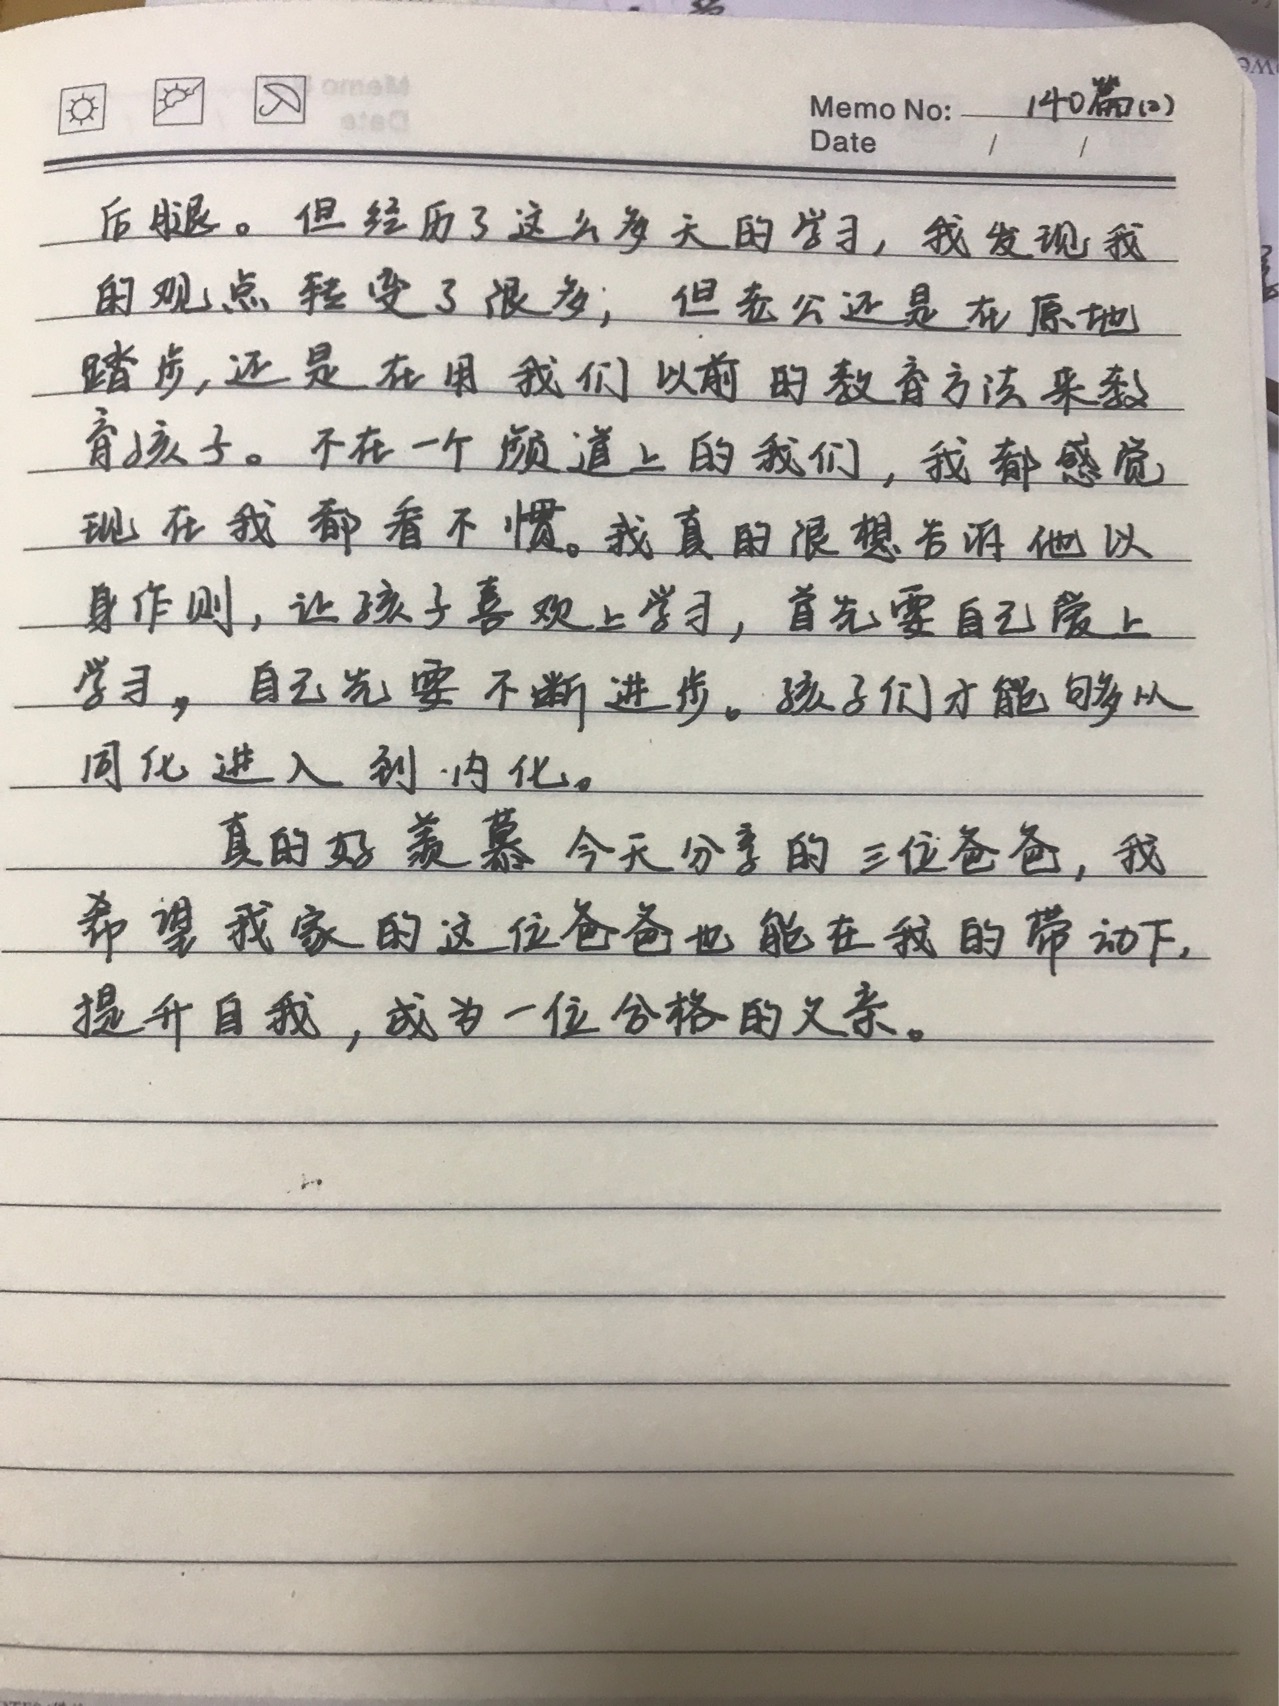 Memo No: 140篇(2)
Date / /
后腿。但经历了这么多天的学习，我发现我
的观点转变了很多；但老公还是在原地
踏步，还是在用我们以前的教育方法来教
育孩子。不在一个频道上的我们，我都感觉
现在我都看不惯。我真的很想告诉他以
身作则，让孩子喜欢上学习，首先要自己爱上
学习，自己先要不断进步。孩子们才能够从
同化进入到内化。
真的好羡慕今天分享的三位爸爸，我
希望我家的这位爸爸也能在我的带动下，
提升自我，成为一位合格的父亲。